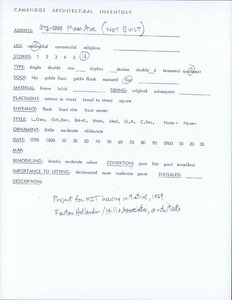 CAMBRIDGE ARCHITECTURAL INVENTORY
ADDRESS: 872-1000 Mass Ave (NOT BUILT)
USE: residential commercial religious
STORIES: 1 2 3 4 5
TYPE: single double row duplex decker double tenement apartment
ROOF: hip gable front gable flank mansard flat
MATERIAL: frame brick SIDING: original subsequent
PLACEMENT: narrow to street broad to street square
ENTRANCE: flank front side front center
ORNAMENT: little moderate elaborate
DATE: 1790 1800 10 20 30 40 50 60 70 80 90 1900 10 20 30
MAP:
REMODELING: drastic moderate minor CONDITION: poor fair good excellent
IMPORTANCE TO SETTING: detrimental none moderate great INITIALED:
DESCRIPTION:
Project for MIT housing initiative, 1969
Hollander / Hill &Associates, architects